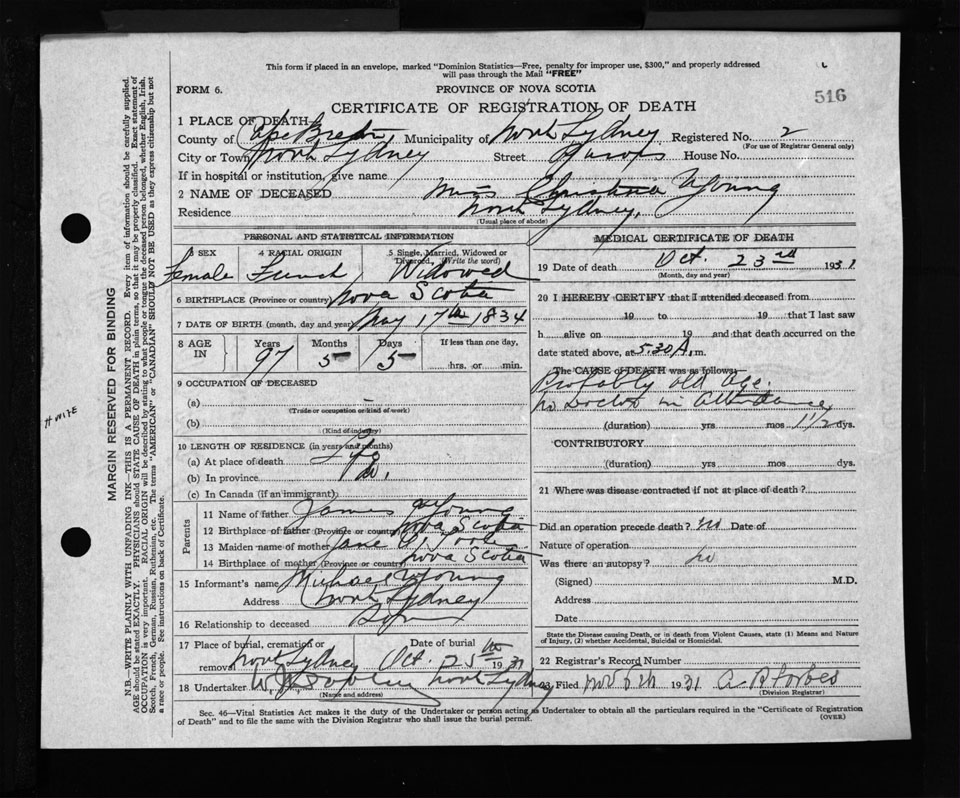 This form if placed in an envelope, marked "Dominion Statistics—Free, penalty for improper use, $300," and properly addressed
will pass through the Mail "FREE"
FORM 6. PROVINCE OF NOVA SCOTIA 516
CERTIFICATE OF REGISTRATION OF DEATH
1 PLACE OF DEATH
County of Cape Breton, Municipality of North Sydney Registered No. 2
(For use of Registrar General only)
City or Town North Sydney Street House No.
If in hospital or institution, give name
2 NAME OF DECEASED Miss Christina Young
Residence North Sydney,
(Usual place of abode)
PERSONAL AND STATISTICAL INFORMATION
3 SEX 4 RACIAL ORIGIN 5 Single, Married, Widowed or Divorced, (Write the word)
Female French Widowed
6 BIRTHPLACE (Province or country) Nova Scotia
7 DATE OF BIRTH (month, day and year) May 17th 1834
8 AGE IN Years 97 Months 5 Days 5 If less than one day, hrs. or min.
9 OCCUPATION OF DECEASED
(a) –
(Trade or occupation or kind of work)
(b)
(Kind of industry)
10 LENGTH OF RESIDENCE (in years and months)
(a) At place of death Life
(b) In province Do.
(c) In Canada (if an immigrant)
Parents
11 Name of father James Young
12 Birthplace of father (Province or country) Nova Scotia
13 Maiden name of mother Jane
14 Birthplace of mother (Province or country) Nova Scotia
15 Informant's name Michael Young
Address North Sydney
16 Relationship to deceased Son
17 Place of burial, cremation or removal North Sydney Date of burial Oct. 25th 1931
18 Undertaker North Sydney
(Name and address)
MEDICAL CERTIFICATE OF DEATH
19 Date of death Oct. 23rd 1931
(Month, day and year)
20 I HEREBY CERTIFY that I attended deceased from
19 to 19 that I last saw
h alive on 19 and that death occurred on the
date stated above, at 5.30 A.m.
The CAUSE of DEATH was as follows:
Probably old age.
No Doctor in Attendance
(duration) yrs mos 1 1/2 dys.
CONTRIBUTORY
(duration) yrs mos dys.
21 Where was disease contracted if not at place of death?
Did an operation precede death? no Date of
Nature of operation
Was there an autopsy? no
(Signed) M.D.
Address
Date
State the Disease causing Death, or in death from Violent Causes, state (1) Means and Nature
of Injury, (2) whether Accidental, Suicidal or Homicidal.
22 Registrar's Record Number
23 Filed Nov 6th 1931 A R Forbes
(Division Registrar)
Sec. 46—Vital Statistics Act makes it the duty of the Undertaker or person acting as Undertaker to obtain all the particulars required in the "Certificate of Registration
of Death" and to file the same with the Division Registrar who shall issue the burial permit.
(OVER)
H WIFE
MARGIN RESERVED FOR BINDING
N.B.—WRITE PLAINLY WITH UNFADING INK—THIS IS A PERMANENT RECORD. Every item of information should be carefully supplied.
AGE should be stated EXACTLY. PHYSICIANS should STATE CAUSE OF DEATH in plain terms, so that it may be properly classified. Exact statement of
OCCUPATION is very important. RACIAL ORIGIN will be described by stating to what people or tongue the deceased person belonged, whether English, Irish,
Scotch, French, German, Russian, Ruthenian, etc. The terms "AMERICAN" or "CANADIAN" SHOULD NOT BE USED as they express citizenship but not
a race or people. See instructions on back of Certificate.